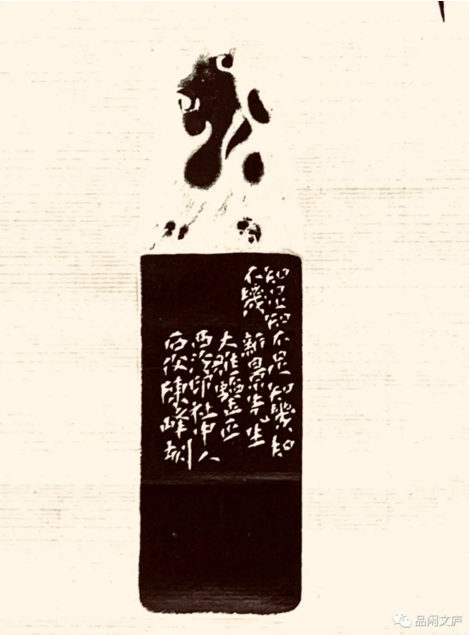 知足知不足知幾知
不幾 新景先生
大雅正
西泠印社中人
陳峰刻
品闲文庐